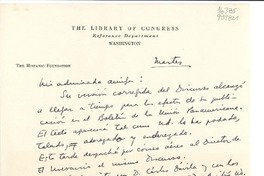 THE LIBRARY OF CONGRESS
Reference Department
WASHINGTON
THE HISPANIC FOUNDATION
Martes
Mi admirado amigo:
Su versión corregida del Discurso alcanzó
a llegar a tiempo para los efectos de su publi-
cación en el Boletín de la Unión Panamericana.
El texto aparecerá tal como Ud. lo ha podado,
talado, y enderezado.
Esta tarde despaché por correo aéreo al Director de
El Mercurio el mismo Discurso.
D. Carlos Dávila y con